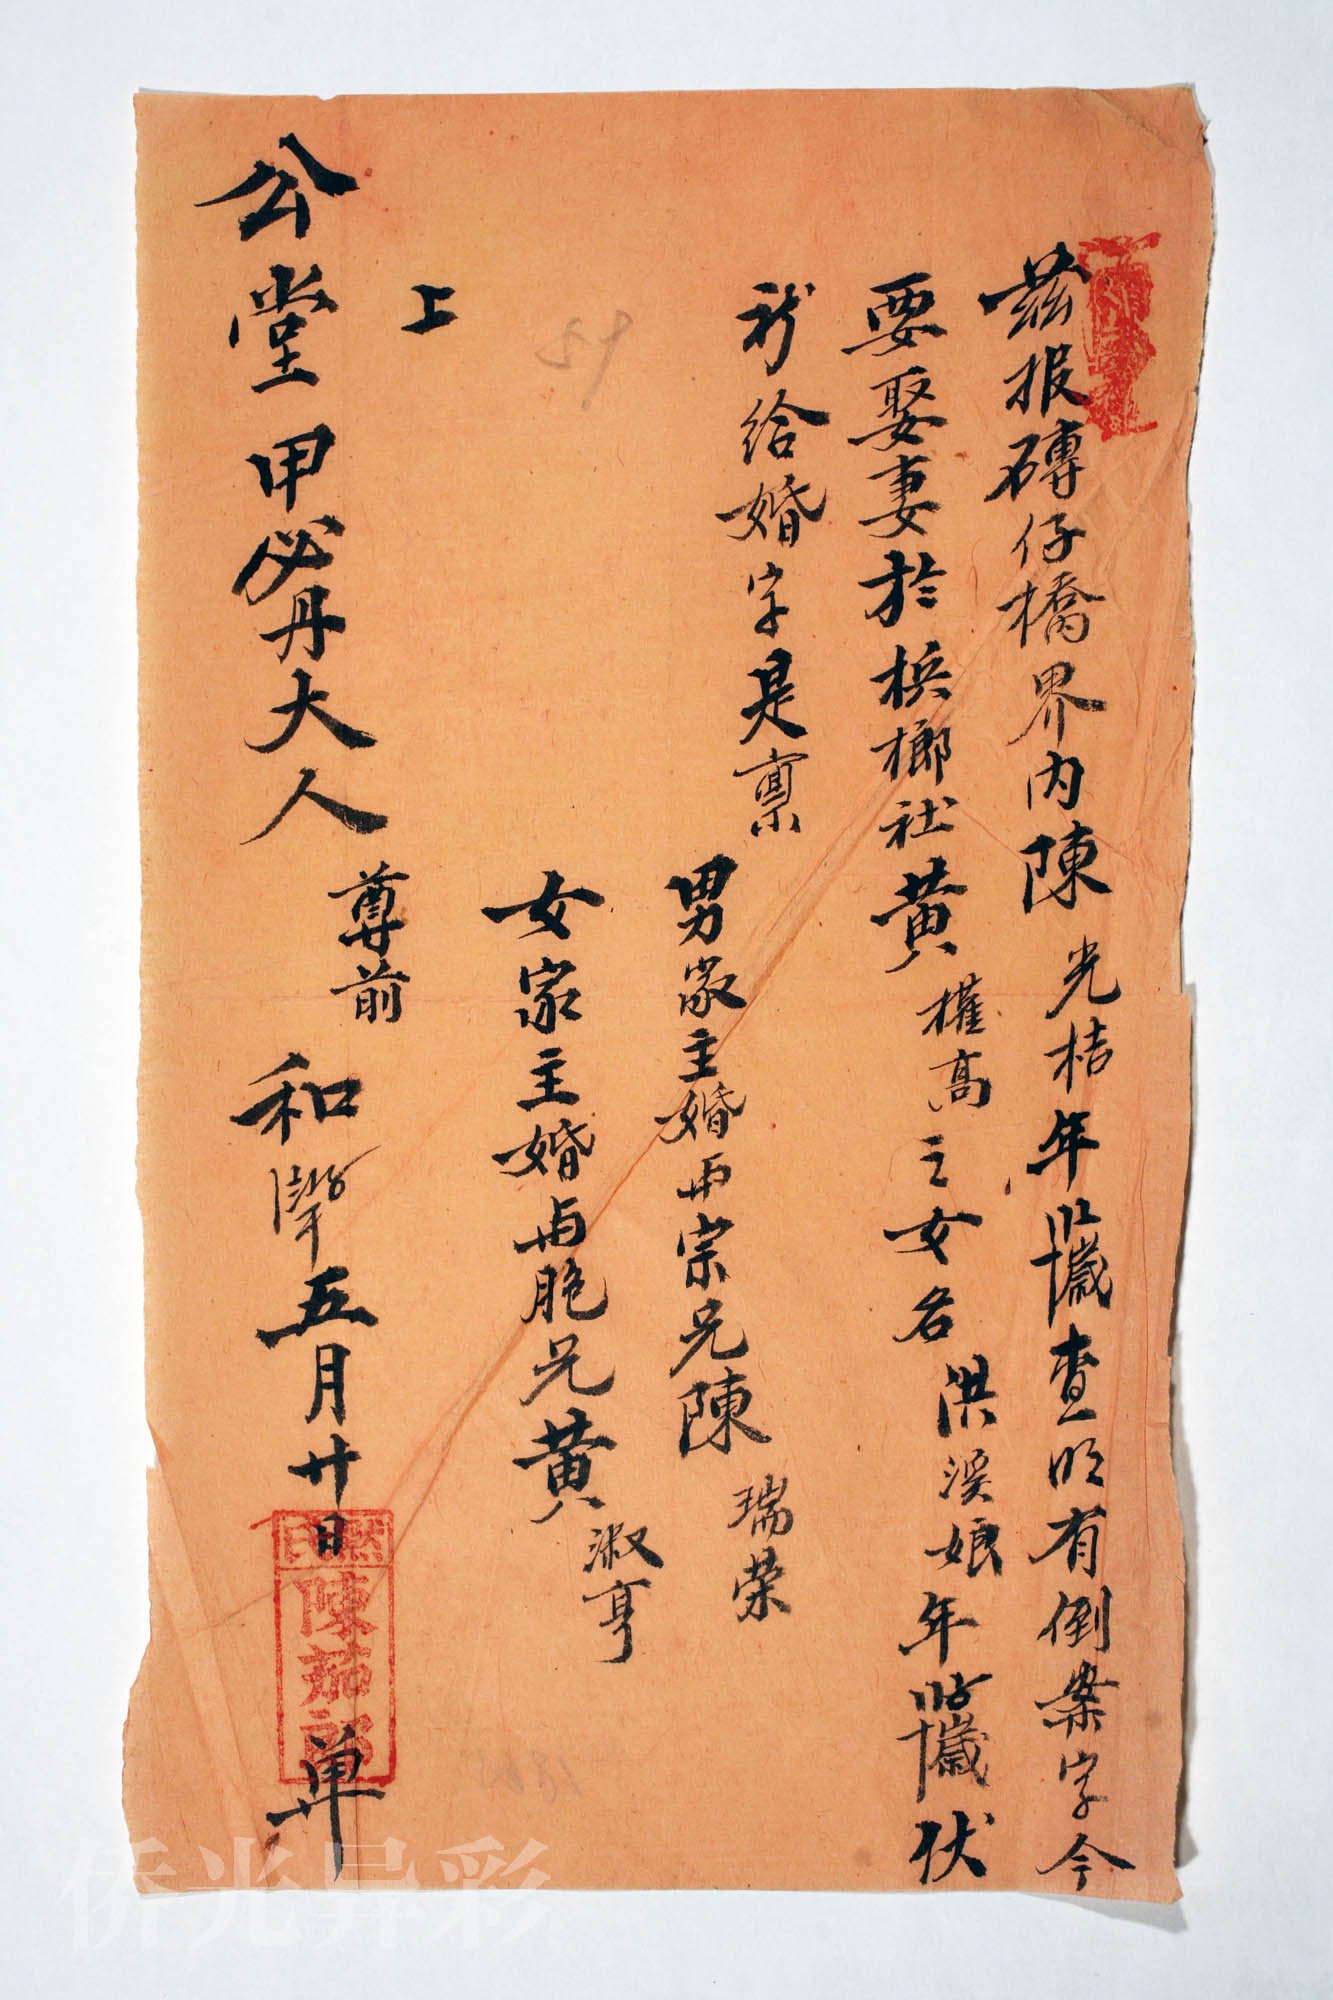 茲报磚仔橋界内陳光桔年歲查明有倒案字今
要娶妻於梹榔社黄權高之女名洪漢娘年歲伏
祈給婚字是禀
男家主婚再宗兄陳瑞荣
女家主婚再胞兄黄淑亨
上
公堂甲必丹大人尊前
和聲五月廿日单
默氏
陳茄郎
59
侨光异彩